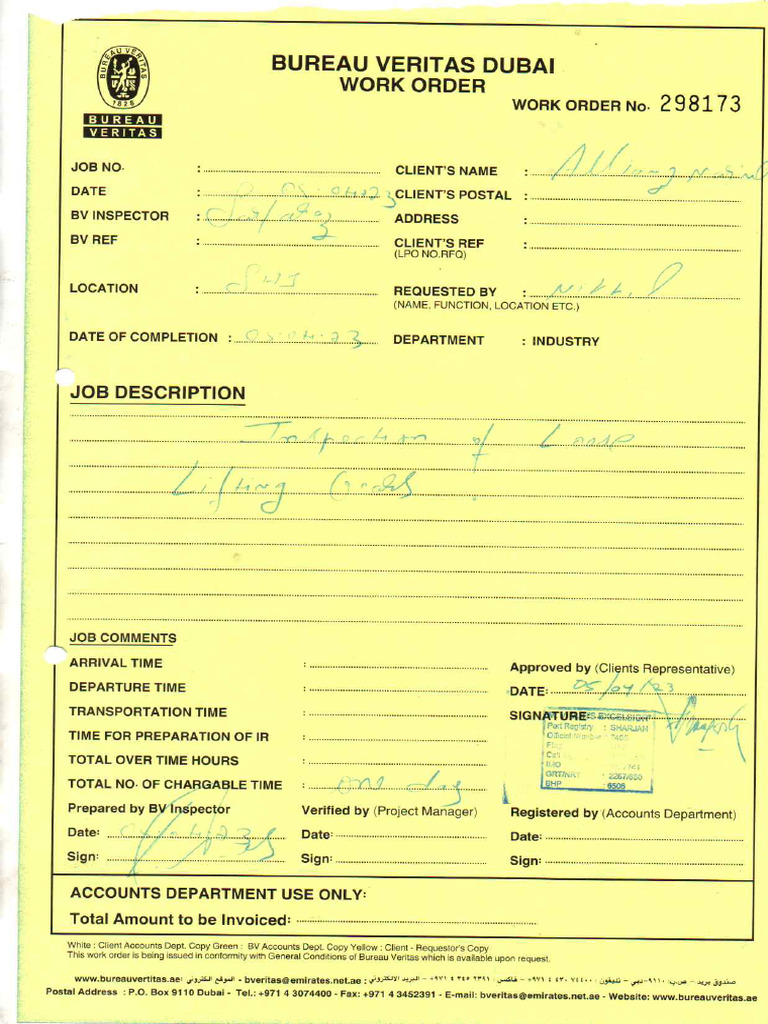 BUREAU VERITAS
1828
BUREAU
VERITAS
BUREAU VERITAS DUBAI
WORK ORDER
WORK ORDER No. 298173
JOB NO. :
CLIENT'S NAME :
DATE : 05.04.23
CLIENT'S POSTAL :
BV INSPECTOR : Sarfaraz
ADDRESS :
BV REF :
CLIENT'S REF :
(LPO NO.RFQ)
LOCATION : SHJ
REQUESTED BY : Nikhil
(NAME, FUNCTION, LOCATION ETC.)
DATE OF COMPLETION : 05.04.23
DEPARTMENT : INDUSTRY
JOB DESCRIPTION
Inspection of Loose
Lifting Gears
JOB COMMENTS
ARRIVAL TIME :
Approved by (Clients Representative)
DEPARTURE TIME :
DATE: 05/04/23
TRANSPORTATION TIME :
SIGNATURE:
Port Registry : SHARJAH
TIME FOR PREPARATION OF IR :
Official Number
TOTAL OVER TIME HOURS :
GRT/NRT : 2267/680
TOTAL NO. OF CHARGABLE TIME : one day
BHP : 6506
Prepared by BV Inspector
Verified by (Project Manager)
Registered by (Accounts Department)
Date:
Date:
Date:
Sign:
Sign:
Sign:
ACCOUNTS DEPARTMENT USE ONLY:
Total Amount to be Invoiced:
White : Client Accounts Dept. Copy Green : BV Accounts Dept. Copy Yellow : Client - Requestor's Copy
This work order is being issued in conformity with General Conditions of Bureau Veritas which is available upon request.
صندوق بريد - ص.ب: ٩١١٠-دبي - تليفون: ٣٠٧٤٤٠٠ ٤ ٩٧١+ - فاكس: ٣٤٥٢٣٩١ ٤ ٩٧١+ - البريد الالكتروني: bveritas@emirates.net.ae - الموقع الكتروني: www.bureauvertitas.ae
Postal Address : P.O. Box 9110 Dubai - Tel.: +971 4 3074400 - Fax: +971 4 3452391 - E-mail: bveritas@emirates.net.ae - Website: www.bureauveritas.ae